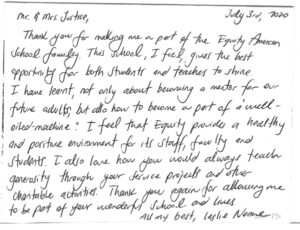 Mr. & Mrs Justice,
July 3rd, 2020
Thank you for making me a part of the Equity American
School family. This School, I feel, gives the best
opportunity for both Students and teaches to shine.
I have learnt, not only about becoming a mentor for our
future adults, but also how to become a part of a "well-
oiled-machine". I feel that Equity provides a healthy
and positive environment for its staff, faculty and
students. I also love how you would always teach
generosity through your service projects and other
charitable activities. Thank you again for allowing me
to be part of your wonderful school and lives.
All my best, Leslie